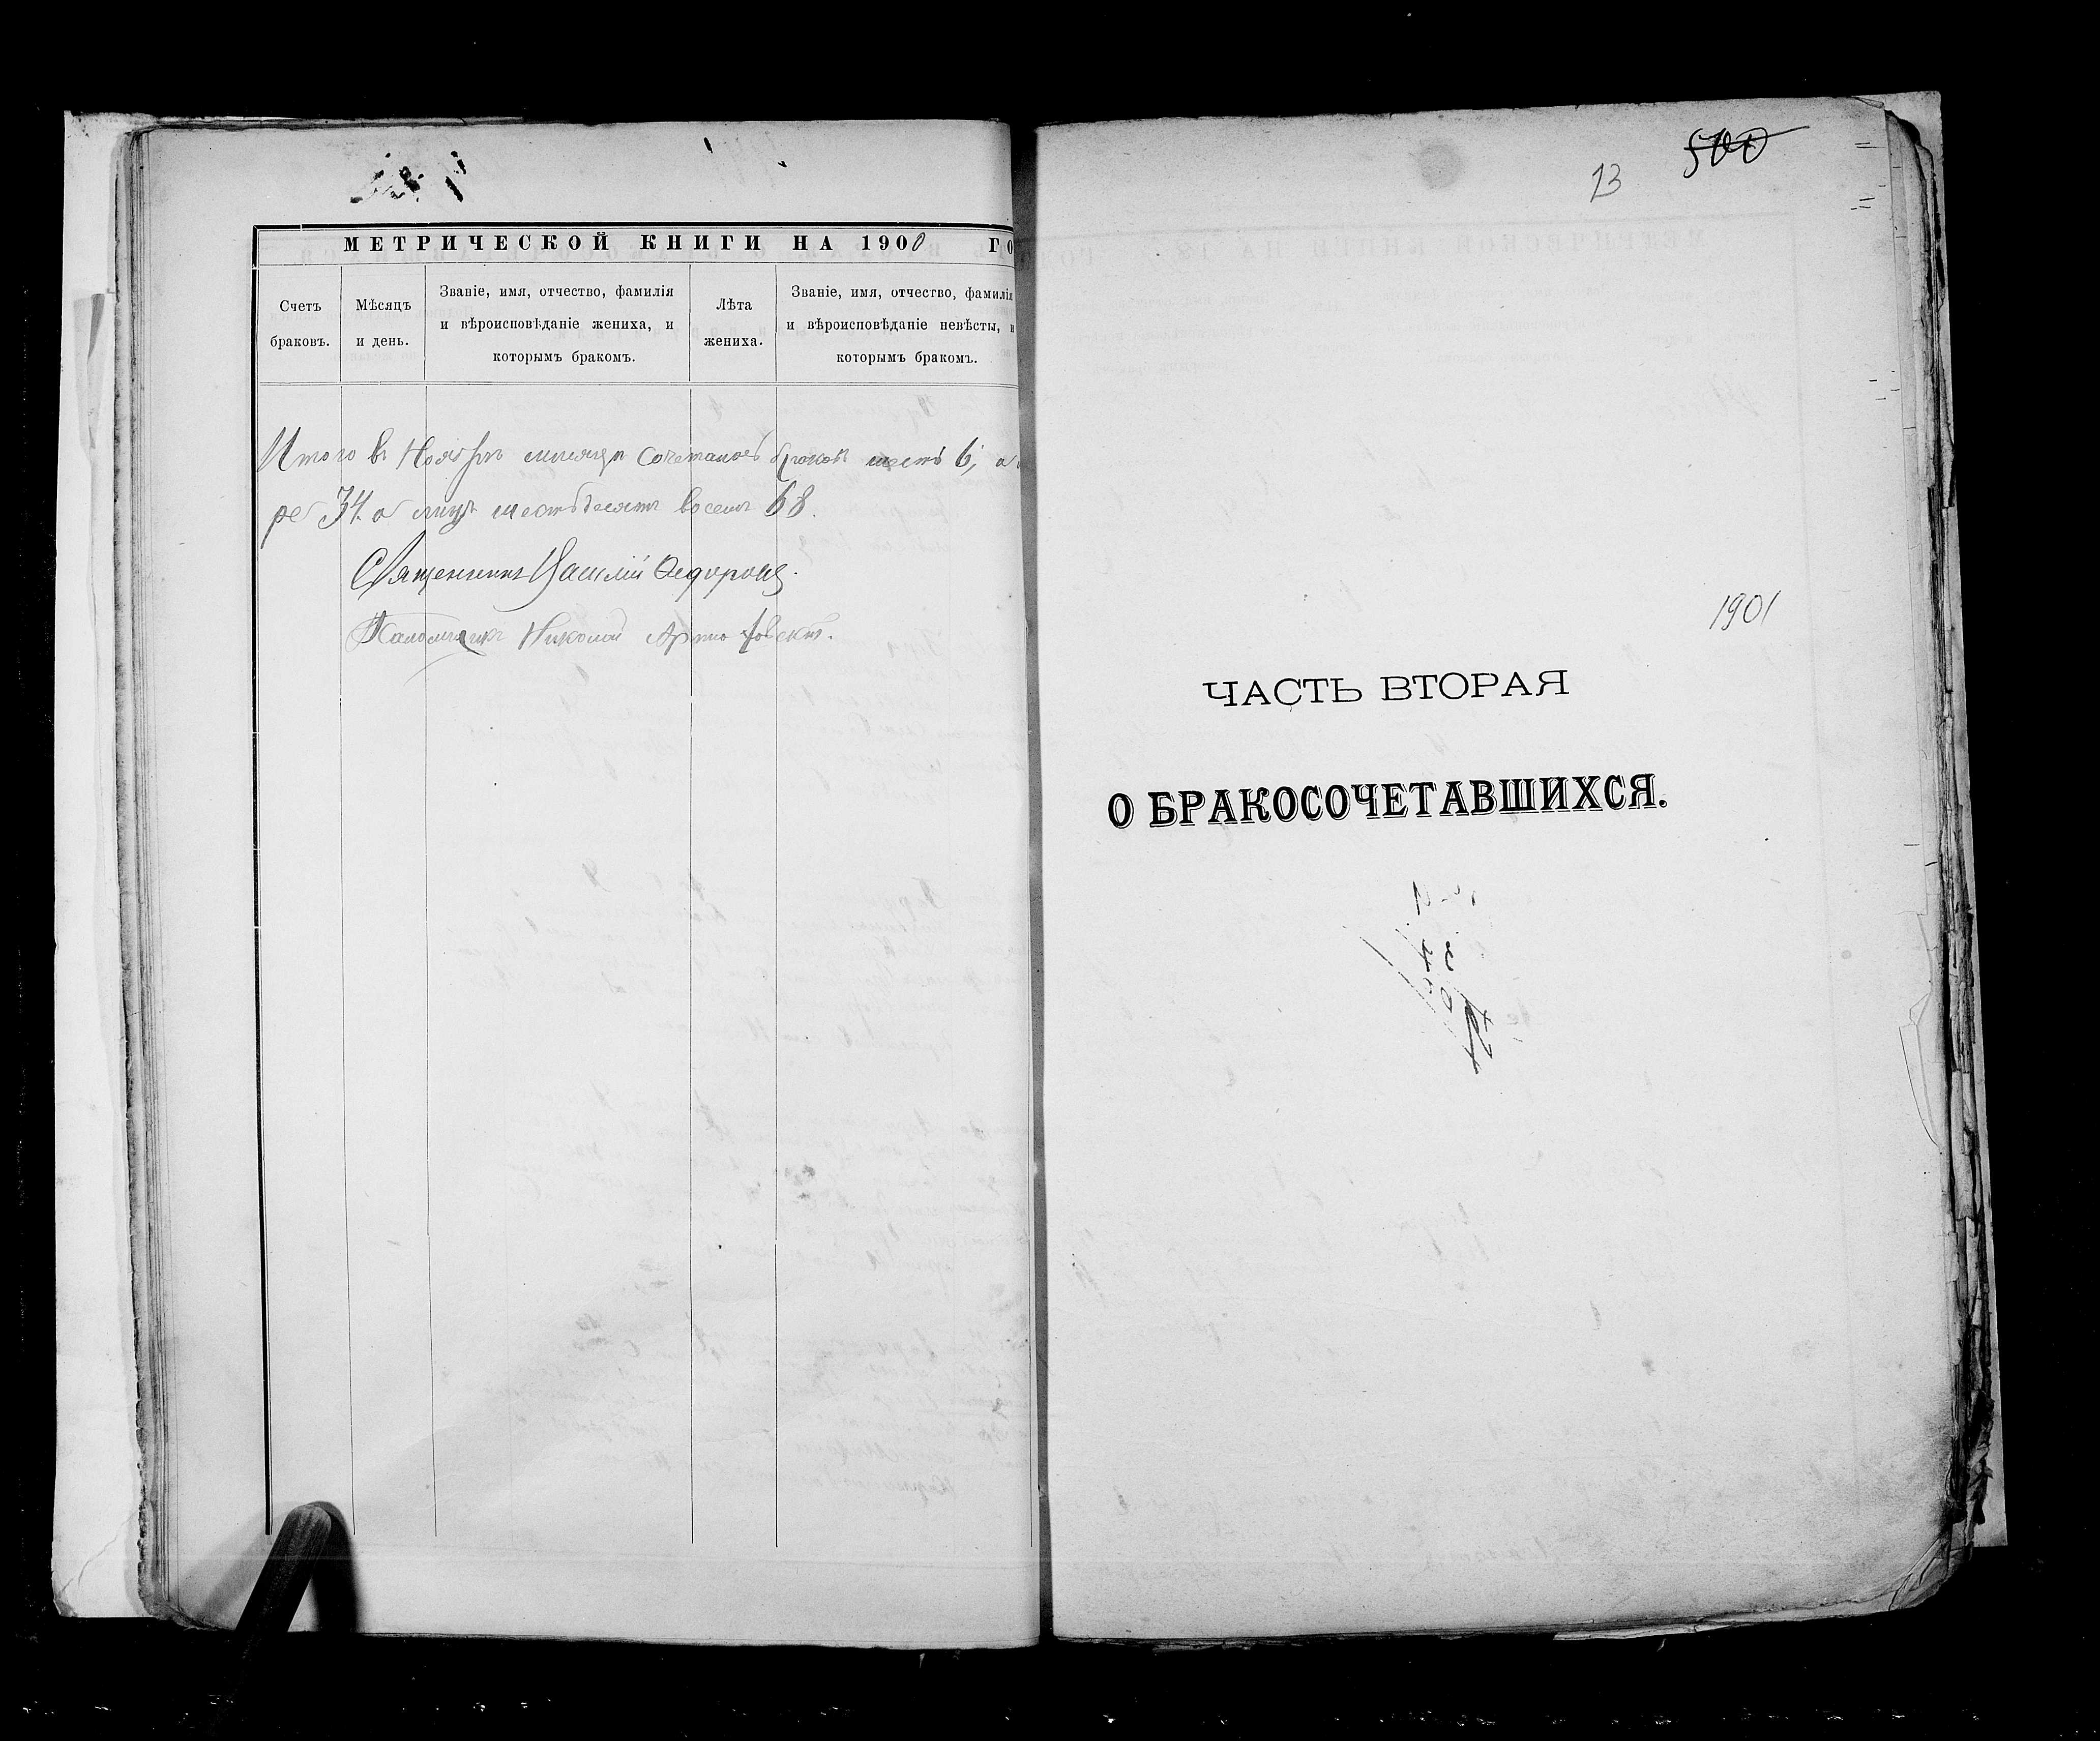 МЕТРИЧЕСКОЙ КНИГИ НА 1900 ГО
Счетъ браковъ.
Мѣсяцъ и день.
Званіе, имя, отчество, фамилія и вѣроисповѣданіе жениха, и которымъ бракомъ.
Лѣта жениха.
Званіе, имя, отчество, фамилія и вѣроисповѣданіе невѣсты, и которымъ бракомъ.
Итого въ Ноябрѣ мѣсяцѣ браковъ шесть 6, а
34. а лицъ шестьдесятъ восемь 68.
Священникъ Василій
Николай
13
500
1901
ЧАСТЬ ВТОРАЯ
О БРАКОСОЧЕТАВШИХСЯ.